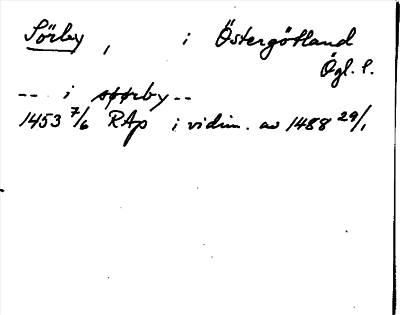 Sörby, i Östergötland
Ögl. l.
-- i sørby --
1453 7/6 RAp i vidim. av 1488 29/1